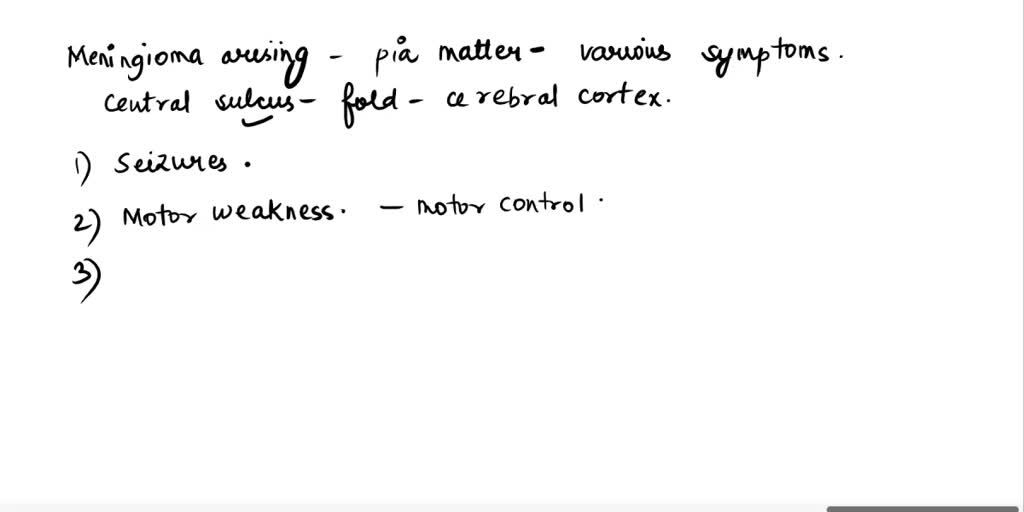 Meningioma arising - pia matter - various symptoms.
Central sulcus - fold - cerebral cortex.
1) Seizures.
2) Motor weakness. - motor control.
3)